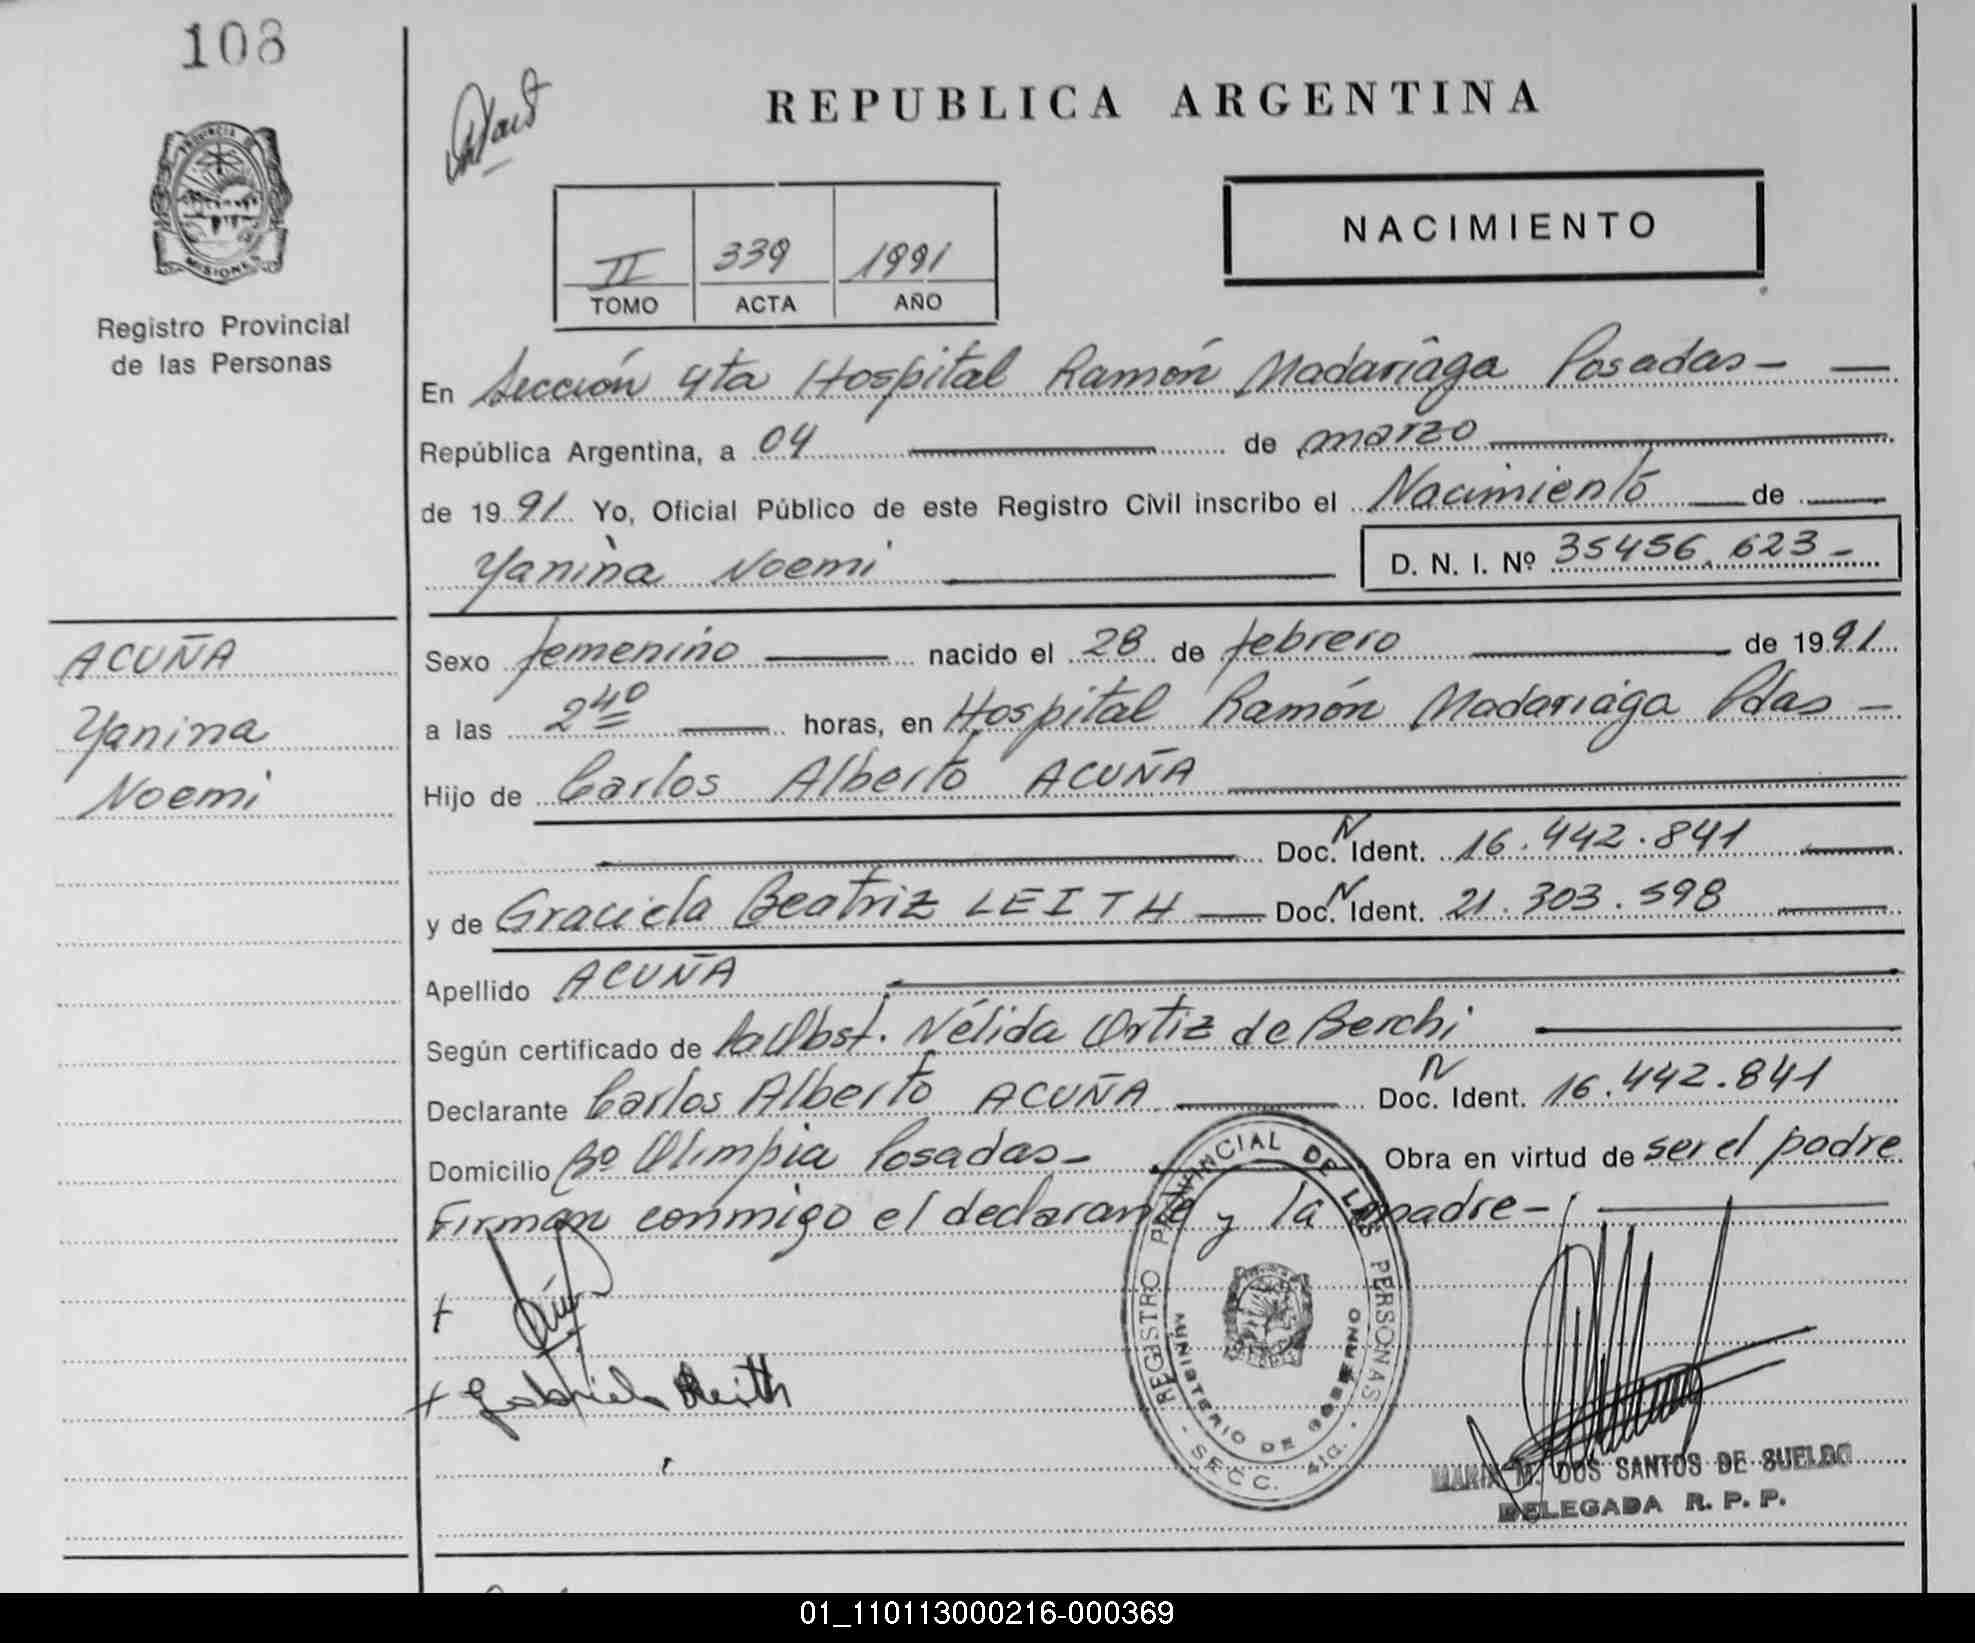 108
REPUBLICA ARGENTINA
PROVINCIA DE
MISIONES
Registro Provincial
de las Personas
NACIMIENTO
II 339 1991
TOMO ACTA AÑO
En Sección 4ta Hospital Ramón Madariaga Posadas -
República Argentina, a 04 de marzo
de 1991 Yo, Oficial Público de este Registro Civil inscribo el Nacimiento de
Yanina Noemi D. N. I. Nº 35456.623-
ACUÑA
Yanina
Noemi
Sexo femenino nacido el 28 de febrero de 1991
a las 2 40 horas, en Hospital Ramón Madariaga Pdas -
Hijo de Carlos Alberto ACUÑA
Doc. N Ident. 16.442.841
y de Graciela Beatriz LEITH Doc. N Ident. 21.303.598
Apellido ACUÑA
Según certificado de la Obst. Nélida Ortiz de Berchi
Declarante Carlos Alberto ACUÑA Doc. N Ident. 16.442.841
Domicilio Bº Olimpia Posadas - Obra en virtud de ser el padre
Firman conmigo el declarante y la madre -
REGISTRO PROVINCIAL DE LAS PERSONAS
MINISTERIO DE GOBIERNO
- SECC. 4ta. -
Leith
MARIA M. DOS SANTOS DE SUELDO
DELEGADA R. P. P.
01_110113000216-000369